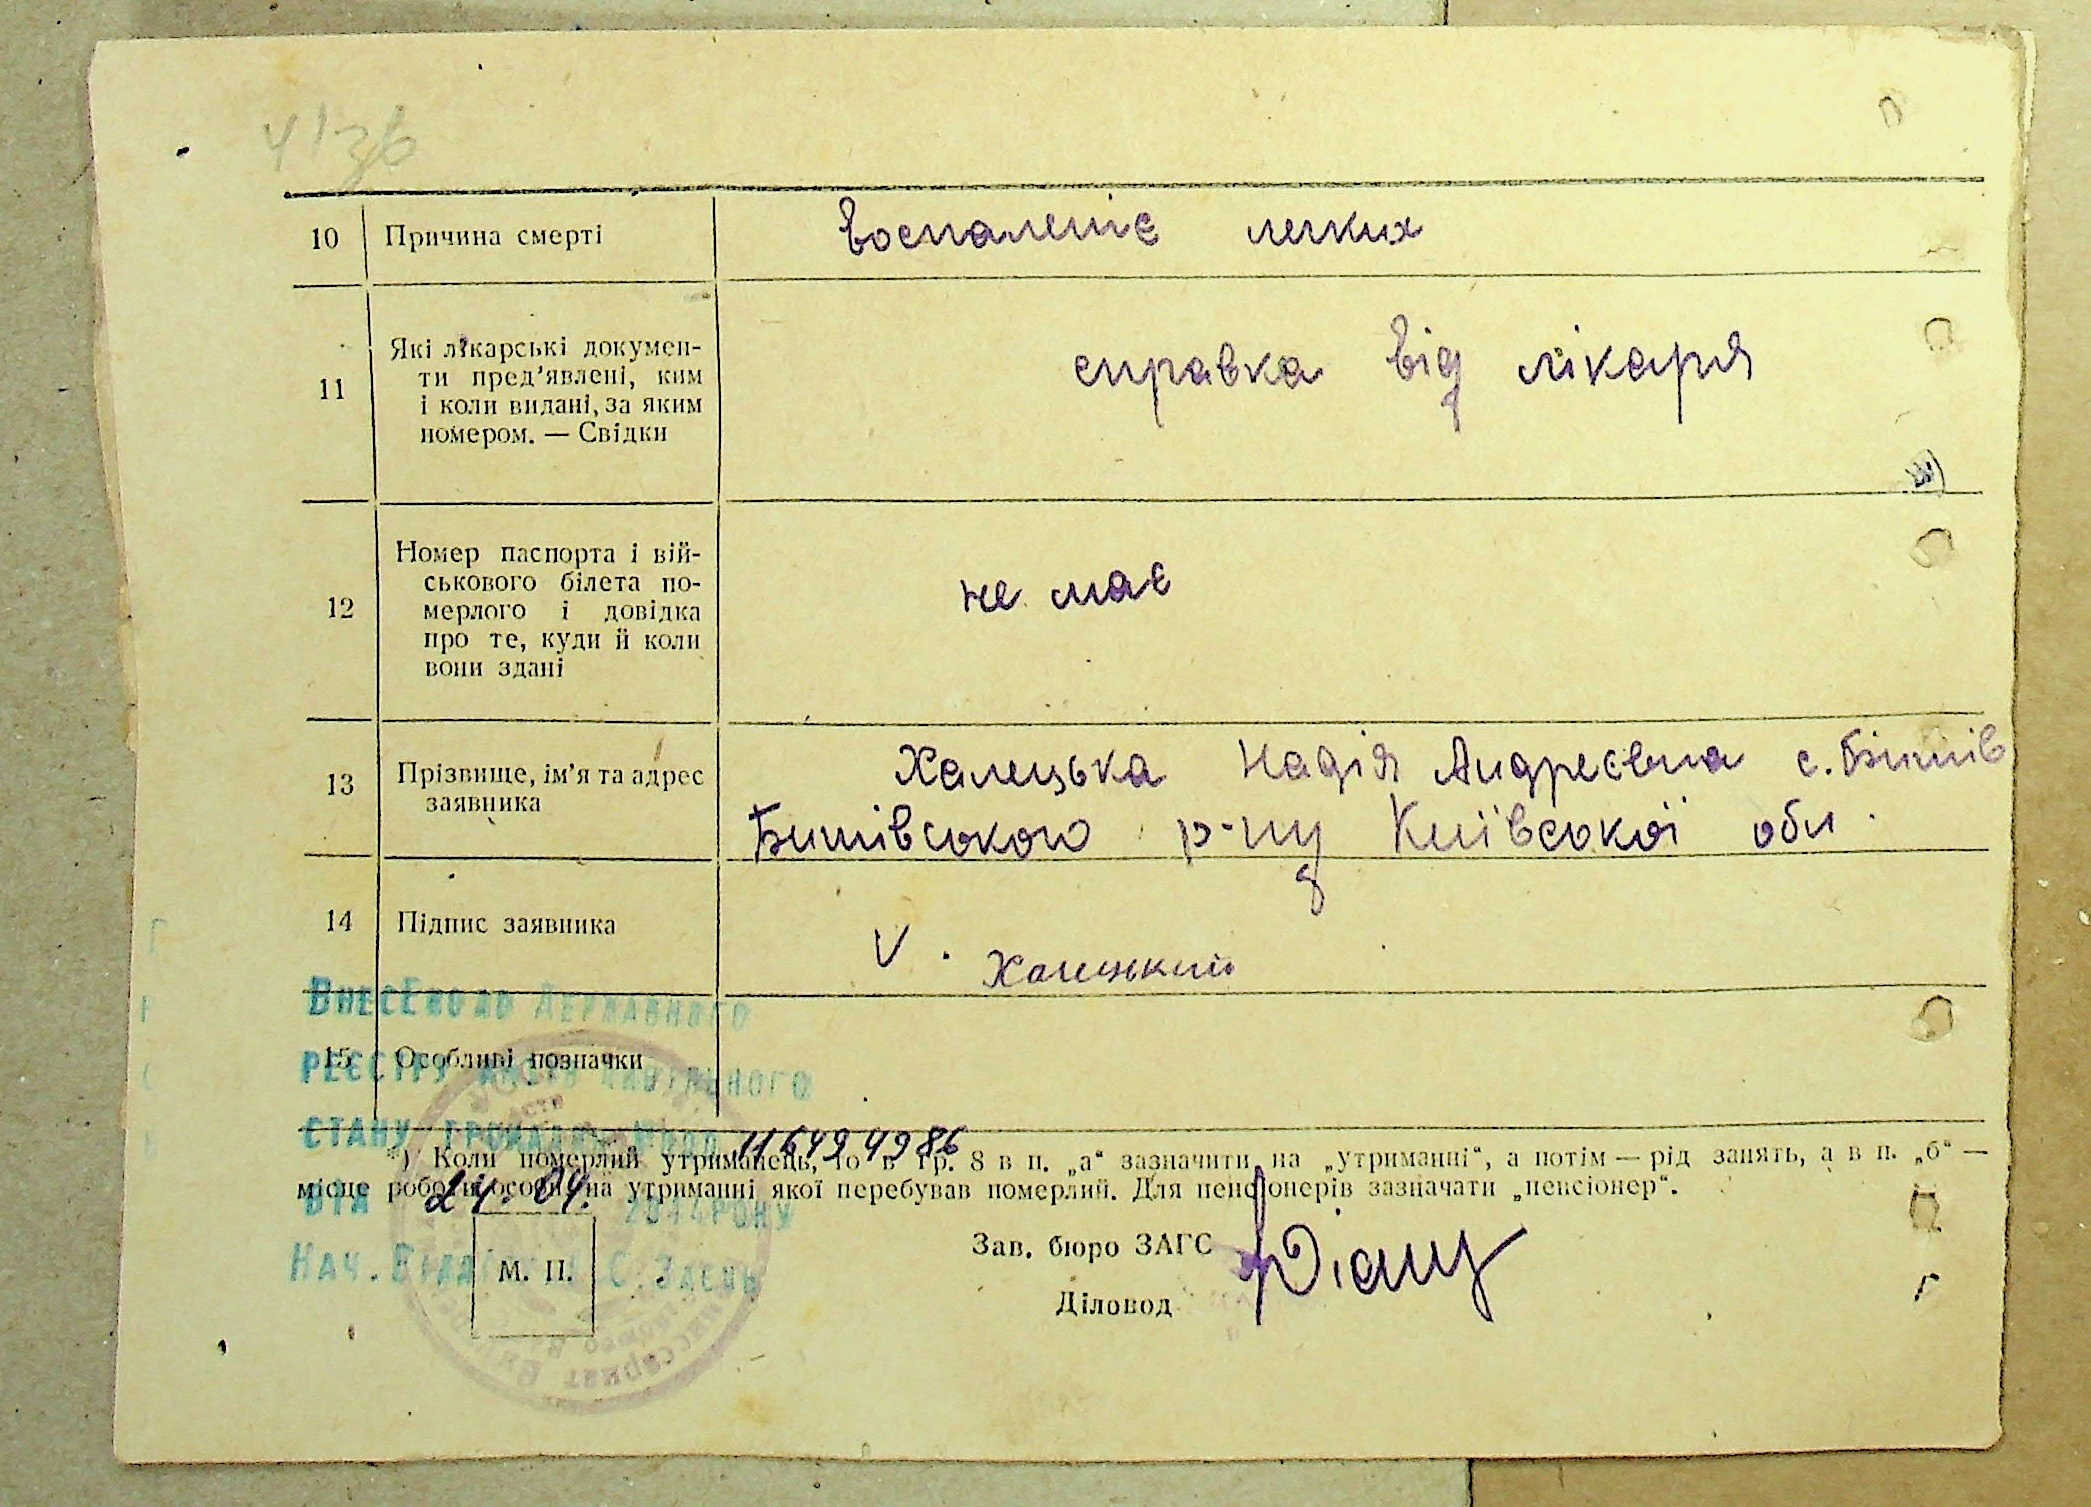 10 Причина смерті воспаленіє легких
11 Які лікарські докумен-
ти пред'явлені, ким
і коли видані, за яким
номером. — Свідки
справка від лікаря
12 Номер паспорта і вій-
ськового білета по-
мерлого і довідка
про те, куди й коли
вони здані
не має
13 Прізвище, ім'я та адрес
заявника
Халецька Надія Андреєвна с. Бишів
Бишівського р-ну Київської обл.
14 Підпис заявника
V. Халецький
Внесено до Державного
15 Особливі позначки
реєстру актів цивільного
стану громадян 116494986
*) Коли померлий утриманець, то в гр. 8 в п. „а“ зазначити на „утриманні“, а потім — рід занять, а в п. „б“ —
місце роботи особи, на утриманні якої перебував померлий. Для пенсіонерів зазначати „пенсіонер“.
від 24.04. року
Зав. бюро ЗАГС
Нач. С. Заєць
М. П.
Діловод